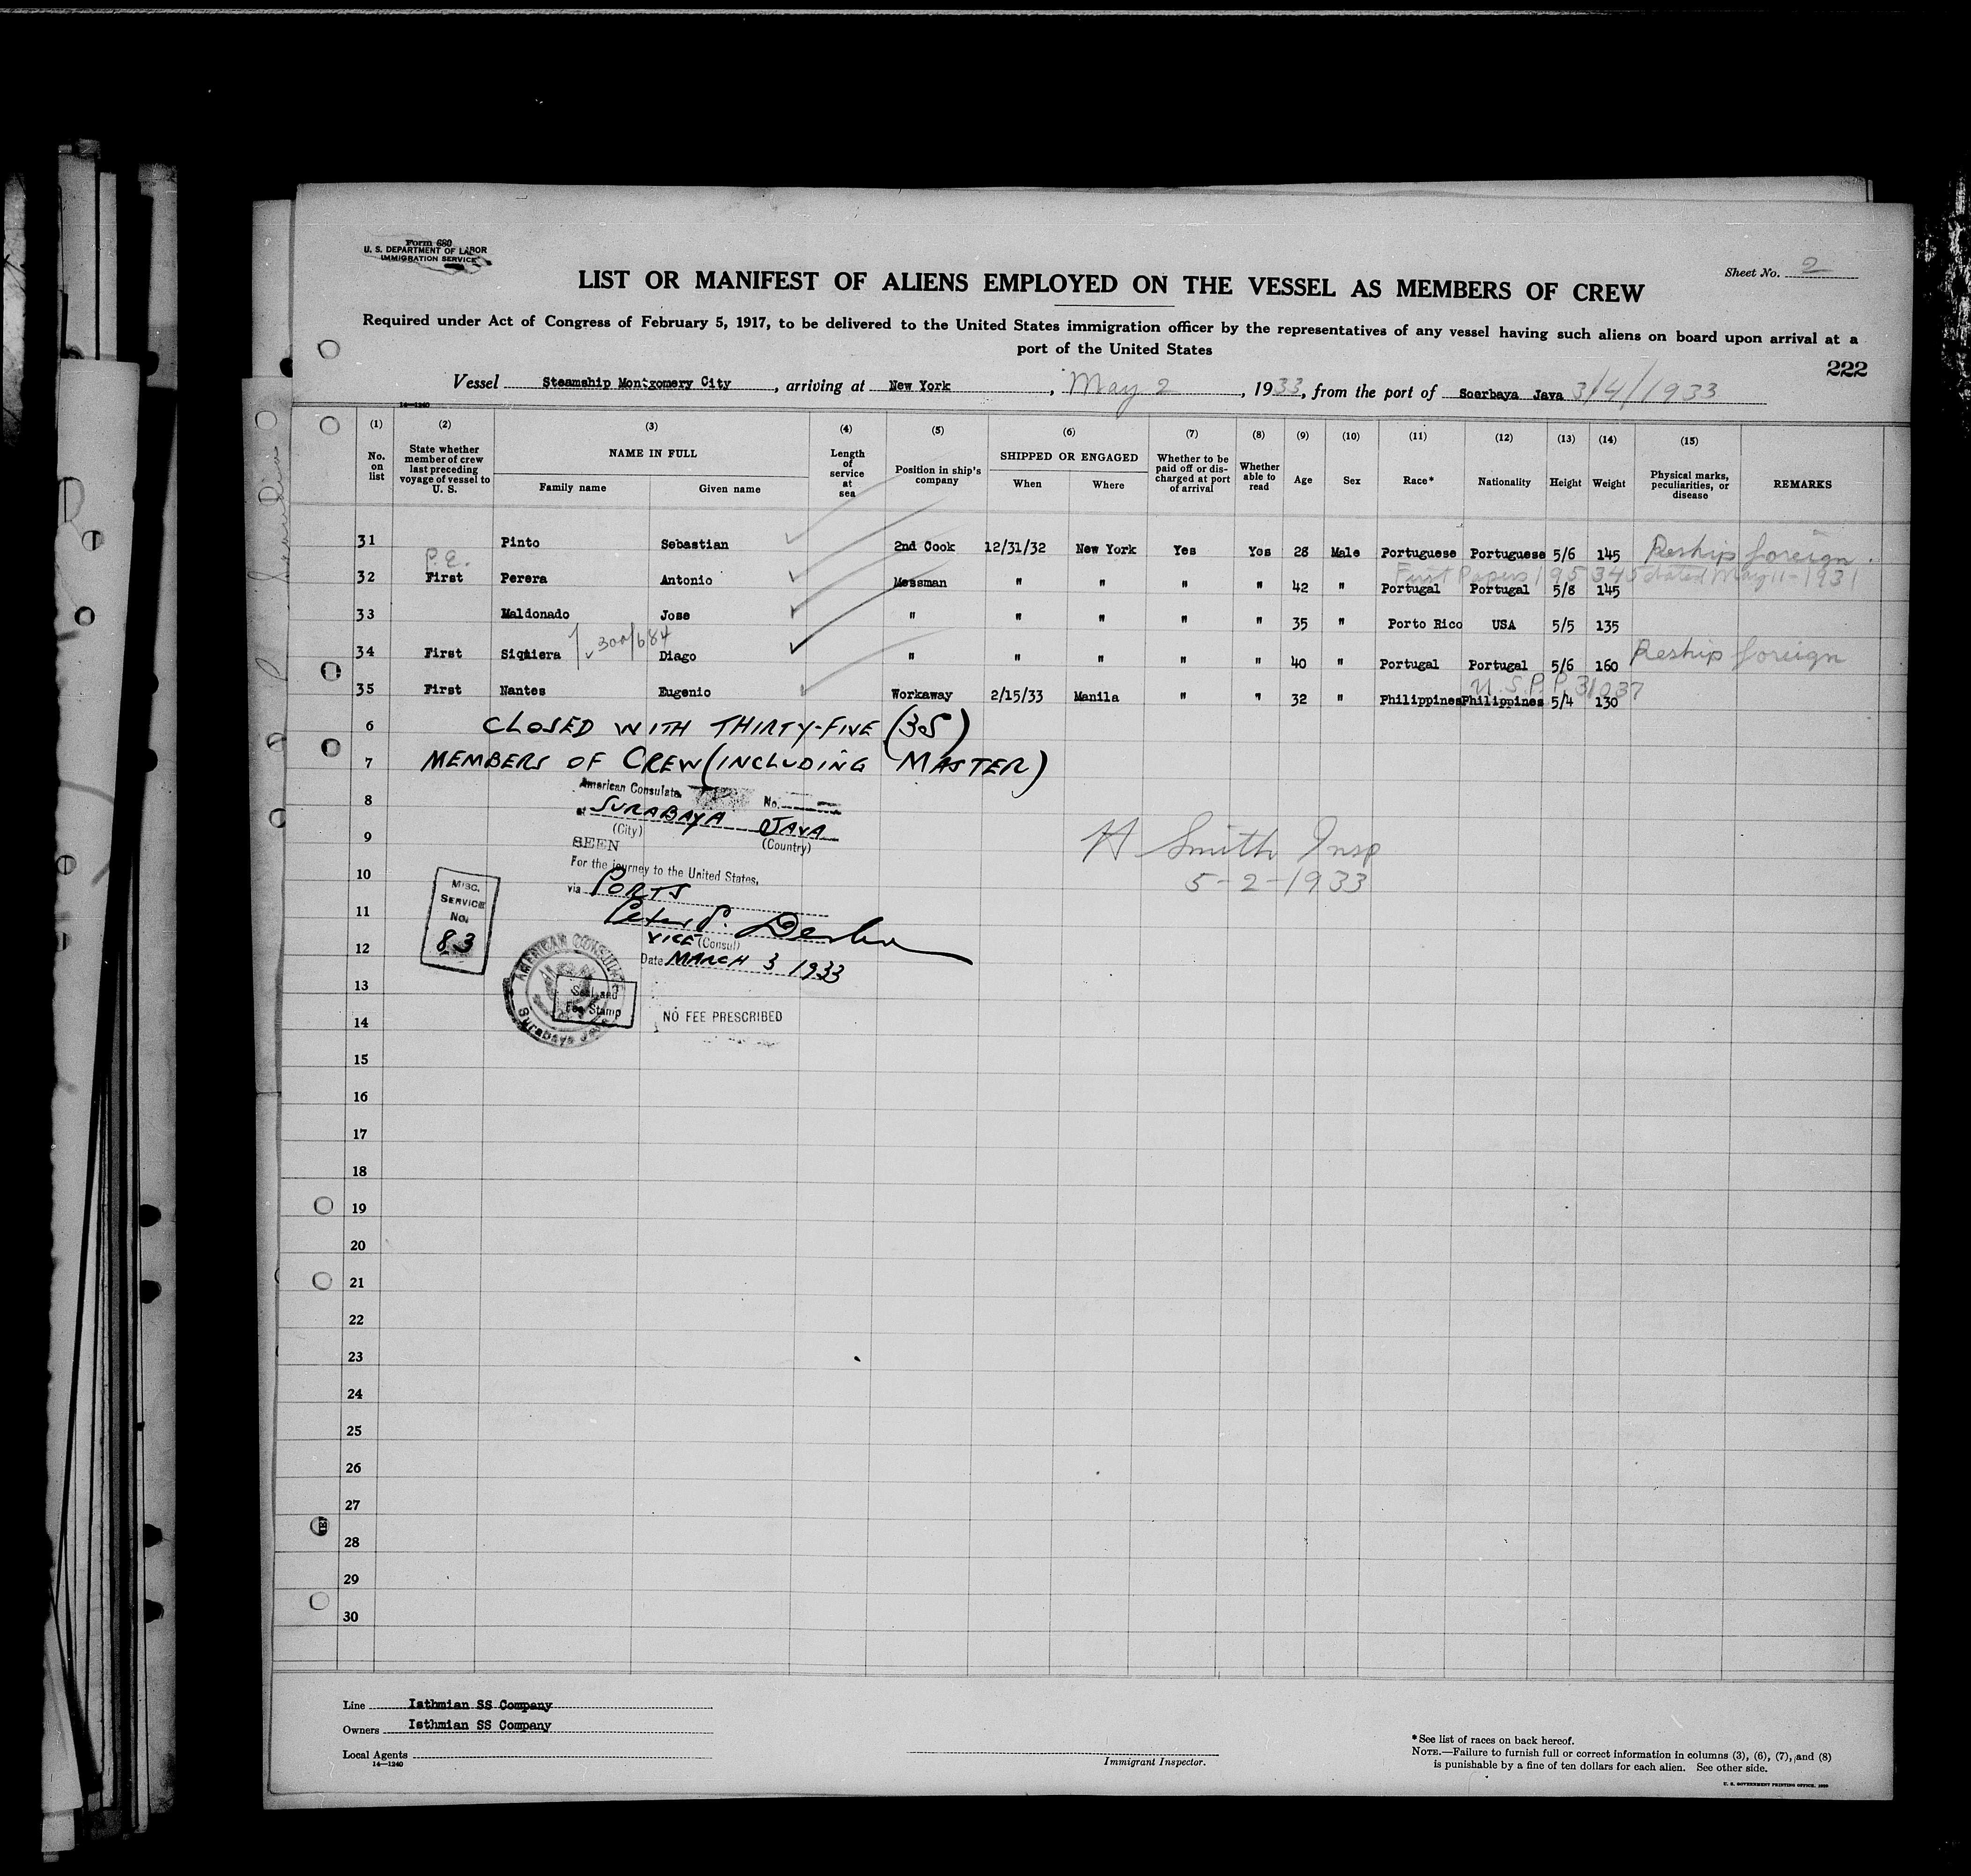 Form 680
U. S. DEPARTMENT OF LABOR
IMMIGRATION SERVICE
Sheet No. 2
LIST OR MANIFEST OF ALIENS EMPLOYED ON THE VESSEL AS MEMBERS OF CREW
Required under Act of Congress of February 5, 1917, to be delivered to the United States immigration officer by the representatives of any vessel having such aliens on board upon arrival at a
port of the United States
222
Vessel Steamship Montgomery City, arriving at New York, May 2, 1933, from the port of Soerbaya Java 3/4/1933
14—1240
(1) (2) (3) (4) (5) (6) (7) (8) (9) (10) (11) (12) (13) (14) (15)
No. on list
State whether member of crew last preceding voyage of vessel to U. S.
NAME IN FULL
Family name
Given name
Length of service at sea
Position in ship's company
SHIPPED OR ENGAGED
When
Where
Whether to be paid off or discharged at port of arrival
Whether able to read
Age
Sex
Race*
Nationality
Height
Weight
Physical marks, peculiarities, or disease
REMARKS
31 Pinto Sebastian 2nd Cook 12/31/32 New York Yes Yes 28 Male Portuguese Portuguese 5/6 145 Reship foreign.
P.E.
First Papers 195345 dated May 11-1931
32 First Perera Antonio Messman " " " " 42 " Portugal Portugal 5/8 145
33 Maldonado Jose " " " " " 35 " Porto Rico USA 5/5 135
300/684
34 First Siquiera Diago " " " " " 40 " Portugal Portugal 5/6 160 Reship foreign
U.S.P.P. 31037
35 First Nantes Eugenio Workaway 2/15/33 Manila " " 32 " Philippines Philippines 5/4 130
6 CLOSED WITH THIRTY-FIVE (35)
7 MEMBERS OF CREW (INCLUDING MASTER)
8 American Consulate No.
at SURABAYA JAVA
9 (City) (Country)
SEEN
H Smith Insp
5-2-1933
For the journey to the United States,
10 via PORTS
MISC. SERVICE No. 83
11 Peter P.
12 VICE (Consul)
Date MARCH 3 1933
AMERICAN CONSULATE
Surabaya Java
13 Seal and
Fee Stamp
NO FEE PRESCRIBED
14
15
16
17
18
19
20
21
22
23
24
25
26
27
28
29
30
Line Isthmian SS Company
Owners Isthmian SS Company
Local Agents
14—1240
Immigrant Inspector.
* See list of races on back hereof.
NOTE.—Failure to furnish full or correct information in columns (3), (6), (7), and (8)
is punishable by a fine of ten dollars for each alien. See other side.
U. S. GOVERNMENT PRINTING OFFICE